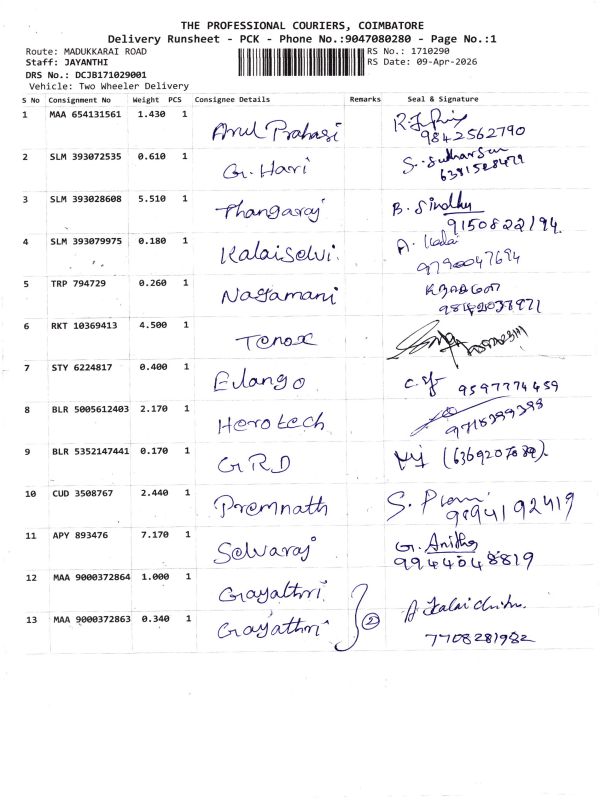 THE PROFESSIONAL COURIERS, COIMBATORE
Delivery Runsheet - PCK - Phone No.:9047080280 - Page No.:1
Route: MADUKKARAI ROAD RS No.: 1710290
Staff: JAYANTHI RS Date: 09-Apr-2026
DRS No.: DCJB171029001
Vehicle: Two Wheeler Delivery
S No Consignment No Weight PCS Consignee Details Remarks Seal & Signature
1 MAA 654131561 1.430 1 Arul Prakasi
9842562790
2 SLM 393072535 0.610 1 G. Hari S. Sudharsan
3 SLM 393028608 5.510 1 Thangaraj B. Sindhu
9150822194
4 SLM 393079975 0.180 1 Kalaiselvi. A. Kalai
9790047694
5 TRP 794729 0.260 1 Nagamani
6 RKT 10369413 4.500 1 Tenox
7 STY 6224817 0.400 1 Elango
9597774459
8 BLR 5005612403 2.170 1 Herotech
9715399398
9 BLR 5352147441 0.170 1 GRD
10 CUD 3508767 2.440 1 Premnath S. Prem
9894192419
11 APY 893476 7.170 1 Selvaraj G. Anitha
9944048819
12 MAA 9000372864 1.000 1 Gayathri
13 MAA 9000372863 0.340 1 Gayathri 2
7708281982